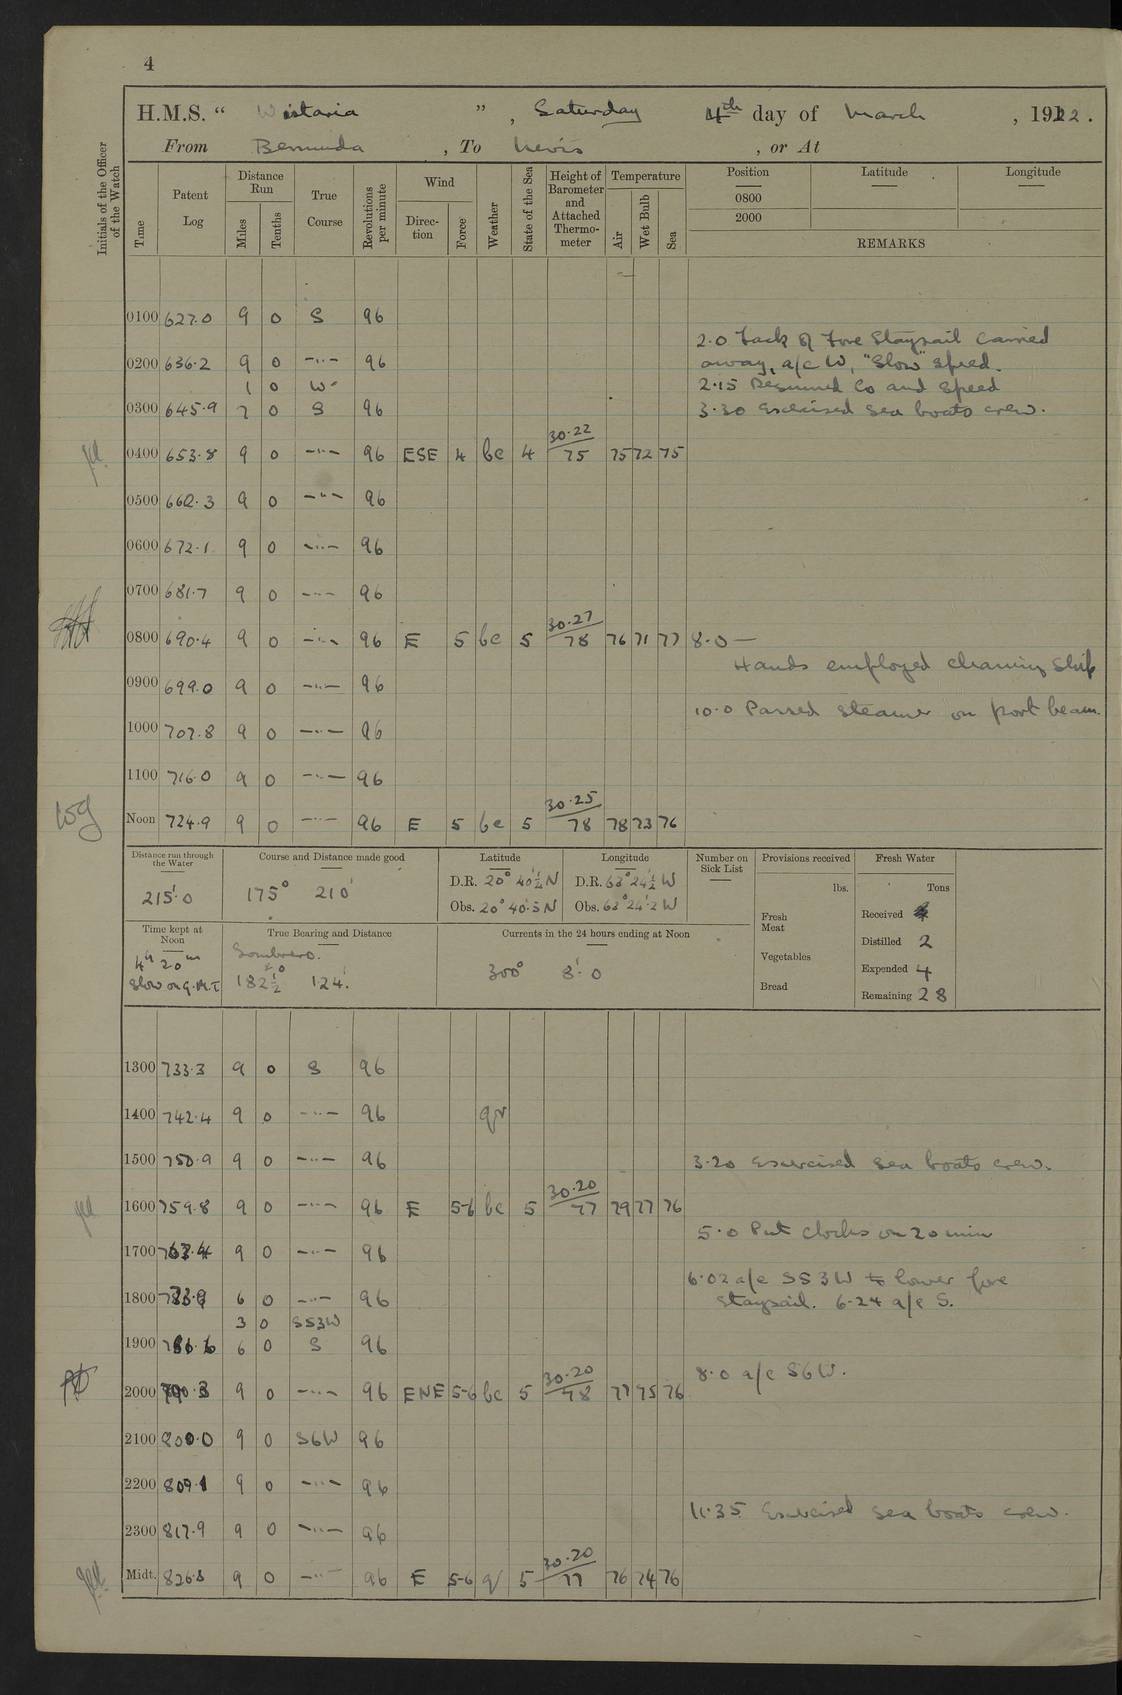 4
H.M.S. “ Wistaria ” , Saturday 4th day of March , 1922 .
From Bermuda , To Nevis , or At
Initials of the Officer of the Watch
Time
Patent Log
Distance Run
Miles
Tenths
True Course
Revolutions per minute
Wind
Direction
Force
Weather
State of the Sea
Height of Barometer and Attached Thermometer
Temperature
Air
Wet Bulb
Sea
Position Latitude Longitude
0800
2000
REMARKS
0100 627.0 9 0 S 96
2.0 Tack of Fore Staysail carried
0200 636.2 9 0 —"— 96 away, a/c W, "Slow" speed.
1 0 W 2.15 Resumed Co and speed
0300 645.9 7 0 S 96 3.30 Exercised sea boats crew.
0400 653.8 9 0 —"— 96 ESE 4 bc 4 30.22/75 75 72 75
0500 662.3 9 0 —"— 96
0600 672.1 9 0 —"— 96
0700 681.7 9 0 —"— 96
0800 690.4 9 0 —"— 96 E 5 bc 5 30.27/78 76 71 77 8.0 —
Hands employed cleaning ship
0900 699.0 9 0 —"— 96
10.0 Passed steamer on port beam.
1000 707.8 9 0 —"— 96
1100 716.0 9 0 —"— 96
Noon 724.9 9 0 —"— 96 E 5 bc 5 30.25/78 78 73 76
Distance run through the Water
215'.0
Course and Distance made good
175° 210'
Latitude
D.R. 20° 40½' N
Obs. 20° 40.5 N
Longitude
D.R. 63° 24½' W
Obs. 63° 24'.2 W
Number on Sick List
Provisions received
lbs.
Fresh Meat
Vegetables
Bread
Fresh Water
Tons
Received
Distilled 2
Expended 4
Remaining 28
Time kept at Noon
4h 20m
slow on G.M.T.
True Bearing and Distance
Sombrero.
182½° 124'.
Currents in the 24 hours ending at Noon
300° 8'.0
1300 733.3 9 0 S 96
1400 742.4 9 0 —"— 96 qr
1500 750.9 9 0 —"— 96 3.20 Exercised sea boats crew.
1600 759.8 9 0 —"— 96 E 5-6 bc 5 30.20/77 79 77 76
5.0 Put clocks on 20 min
1700 9 0 —"— 96
6.02 a/c S53W to lower fore
1800 6 0 —"— 96 staysail. 6.24 a/c S.
3 0 S53W
1900 6 0 S 96
8.0 a/c S6W.
2000 9 0 —"— 96 ENE 5-6 bc 5 30.20/78 77 75 76
2100 800.0 9 0 S6W 96
2200 809.1 9 0 —"— 96
11.35 Exercised sea boats crew.
2300 817.9 9 0 —"— 96
Midt. 826.8 9 0 —"— 96 E 5-6 q 5 30.20/77 76 74 76